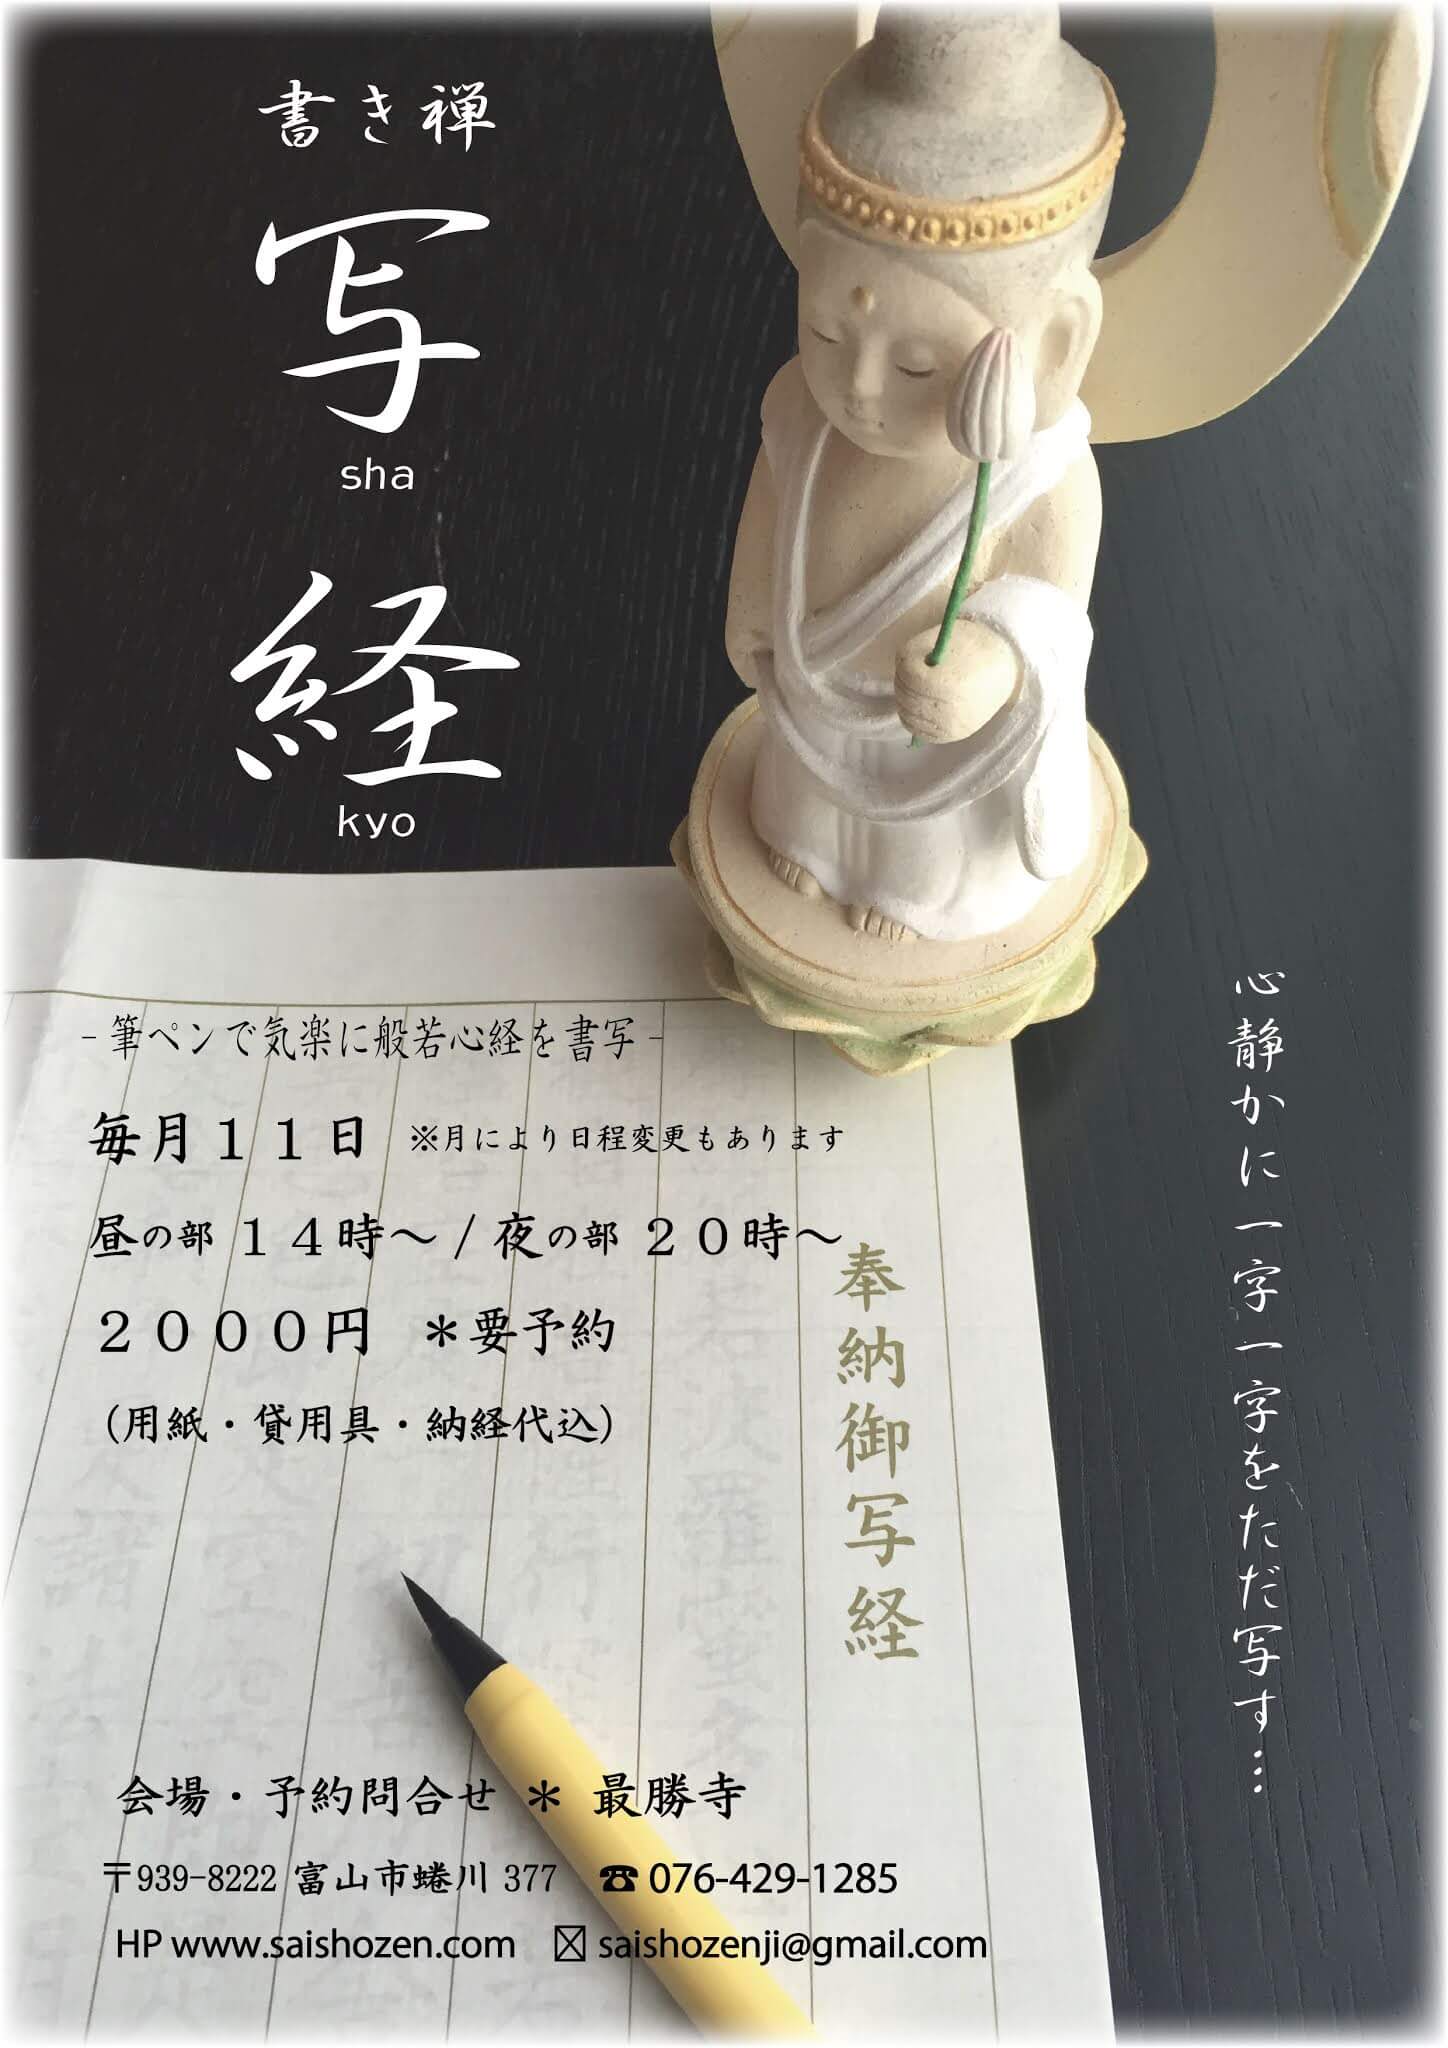 書き禅
写
sha
経
kyo
心静かに一字一字をただ写す…
- 筆ペンで気楽に般若心経を書写 -
毎月１１日 ※月により日程変更もあります
昼の部 １４時～ / 夜の部 ２０時～
２０００円 ＊要予約
（用紙・貸用具・納経代込）
奉納御写経
会場・予約問合せ ＊ 最勝寺
〒939-8222 富山市蜷川 377 ☎ 076-429-1285
HP www.saishozen.com saishozenji@gmail.com